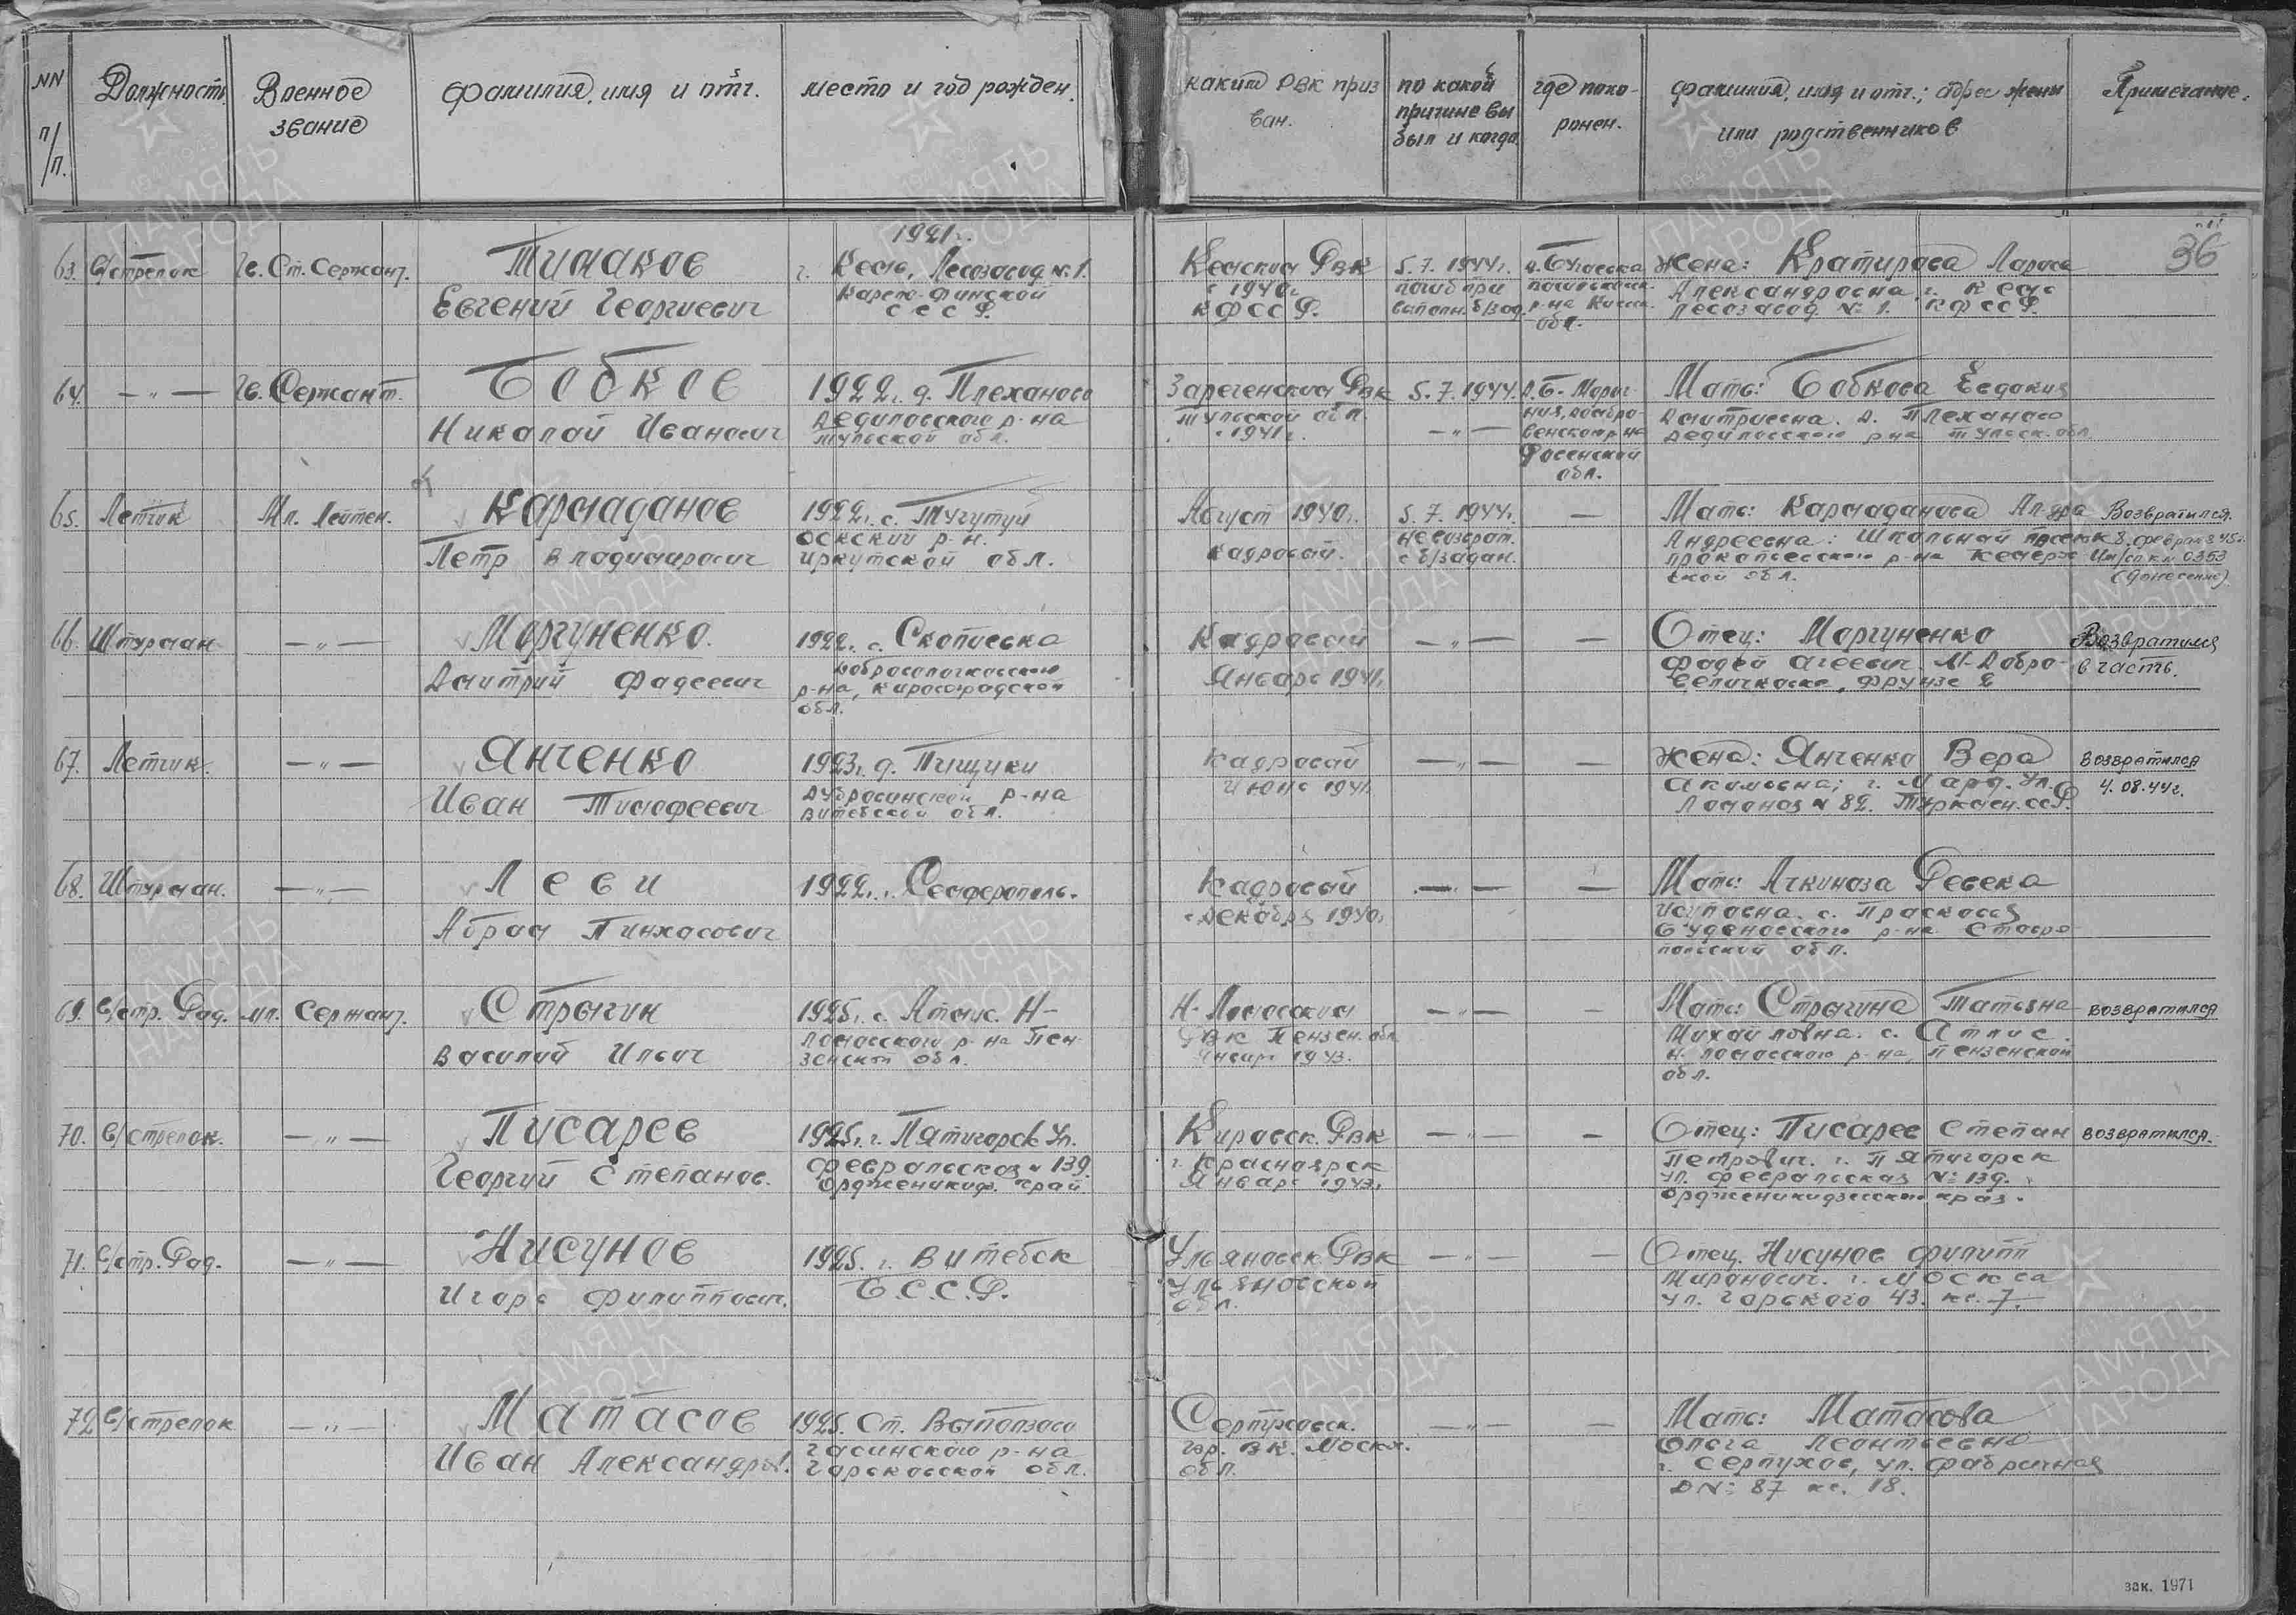 NN п/п.
Должность
Военное звание
фамилия, имя и отч.
место и год рожден.
каким РВК призван.
по какой причине выбыл и когда
где похоронен.
фамилия, имя и отч.; адрес жены или родственников
Примечание.
36
63. В/стрелок
Гв. Ст. Сержант.
Тимаков
Евгений Георгиевич
1921г.
г. Кемь, Лесозавод №1.
Карело-Финской
С С С Р.
Кемским РВК
с 1940г.
КФССР.
5.7.1944г.
погиб при
выполн. б/зад.
жена: Кратирова Лариса
Александровна, г. Кемь
Лесозавод № 1. КФССР.
64. —"—
Гв. Сержант.
Бобков
Николай Иванович
1922г. д. Плеханово
Дедиловского р-на
Тульской обл.
РВК
Тульской обл.
с 1941г.
5.7.1944.
—"—
обл.
Мать: Бобкова Евдокия
Дмитриевна. д. Плеханово
Дедиловского р-на Тульск. обл.
65. Летчик
Мл. Лейтен.
Кармаданов
Петр Владимирович
1922г. с. Тугутуй
Оекский р-н.
Иркутской обл.
Август 1940г.
кадровый.
5.7.1944г.
не возврат.
с б/задан.
—
Мать: Кармаданова Ал-дра
Андреевна: Школьный поселок 8,
Прокопьевского р-на Кемеров
ской обл.
Возвратился.
февраль 45г.
0353
(донесение)
66. Штурман
—"—
Моргуненко.
Дмитрий Фадеевич
1922г. с. Скопиевка
Добровеличковского
р-на, Кировоградской
обл.
Кадровый
Январь 1941г.
—"—
—
Отец: Моргуненко
Фадей Агеевич. М-Добро-
величковка, Фрунзе 2
Возвратился
в часть.
67. Летчик.
—"—
Янченко
Иван Тимофеевич
1923г. д. Пищики
Дубровинской р-на
Витебской обл.
Кадровый
Июнь 1941.
—"—
—
жена: Янченко Вера
Акимовна; г. Мары. Ул.
№ 82. Туркмен. ССР.
возвратился
4.08.44г.
68. Штурман.
—"—
Леви
Абрам Пинхасович
1922г. г. Симферополь.
Кадровый
с Декабря 1940г.
—"—
—
Мать: Ачкинази Ревека
с. Прасковея
Буденовского р-на Ставро
польской обл.
69. В/стр. Рад.
мл. Сержант.
Строгин
Василий Ильич
1925г. с. Атмис. Н-
Ломовского р-на Пен
зенской обл.
Н-Ломовским
РВК Пензен. обл
Январь 1943.
—"—
—
Мать: Строгина Татьяна
Михайловна. с. Атмис.
Н-Ломовского р-на, Пензенской
обл.
возвратился
70. В/стрелок.
—"—
Писарев
Георгий Степанов.
1925г. г. Пятигорск Ул.
Февральская № 139.
Орджоникидз. край
Кировск. РВК
г. Красноярск
Январь 1943г.
—"—
—
Отец: Писарев Степан
Петрович. г. Пятигорск
ул. Февральская № 139.
Орджоникидзевского края.
возвратился.
71. В/стр. Рад.
—"—
Нисунов
Игорь Филиппович.
1925. г. Витебск
Б.С.С.Р.
Ульяновск. РВК
Ульяновской
обл.
—"—
—
Отец. Нисунов Филипп
Миронович. г. Москва
ул. Горького 43. кв. 7.
72 В/стрелок
—"—
Матасов
Иван Александров.
1925. Ст. Выползово
р-на
обл.
Серпуховск.
гор. ВК. Моск.
обл.
—"—
—
Мать: Матасова
Ольга Леонтьевна
г. Серпухов, ул. Фабричная
Д№ 87 кв. 18.
зак. 1971